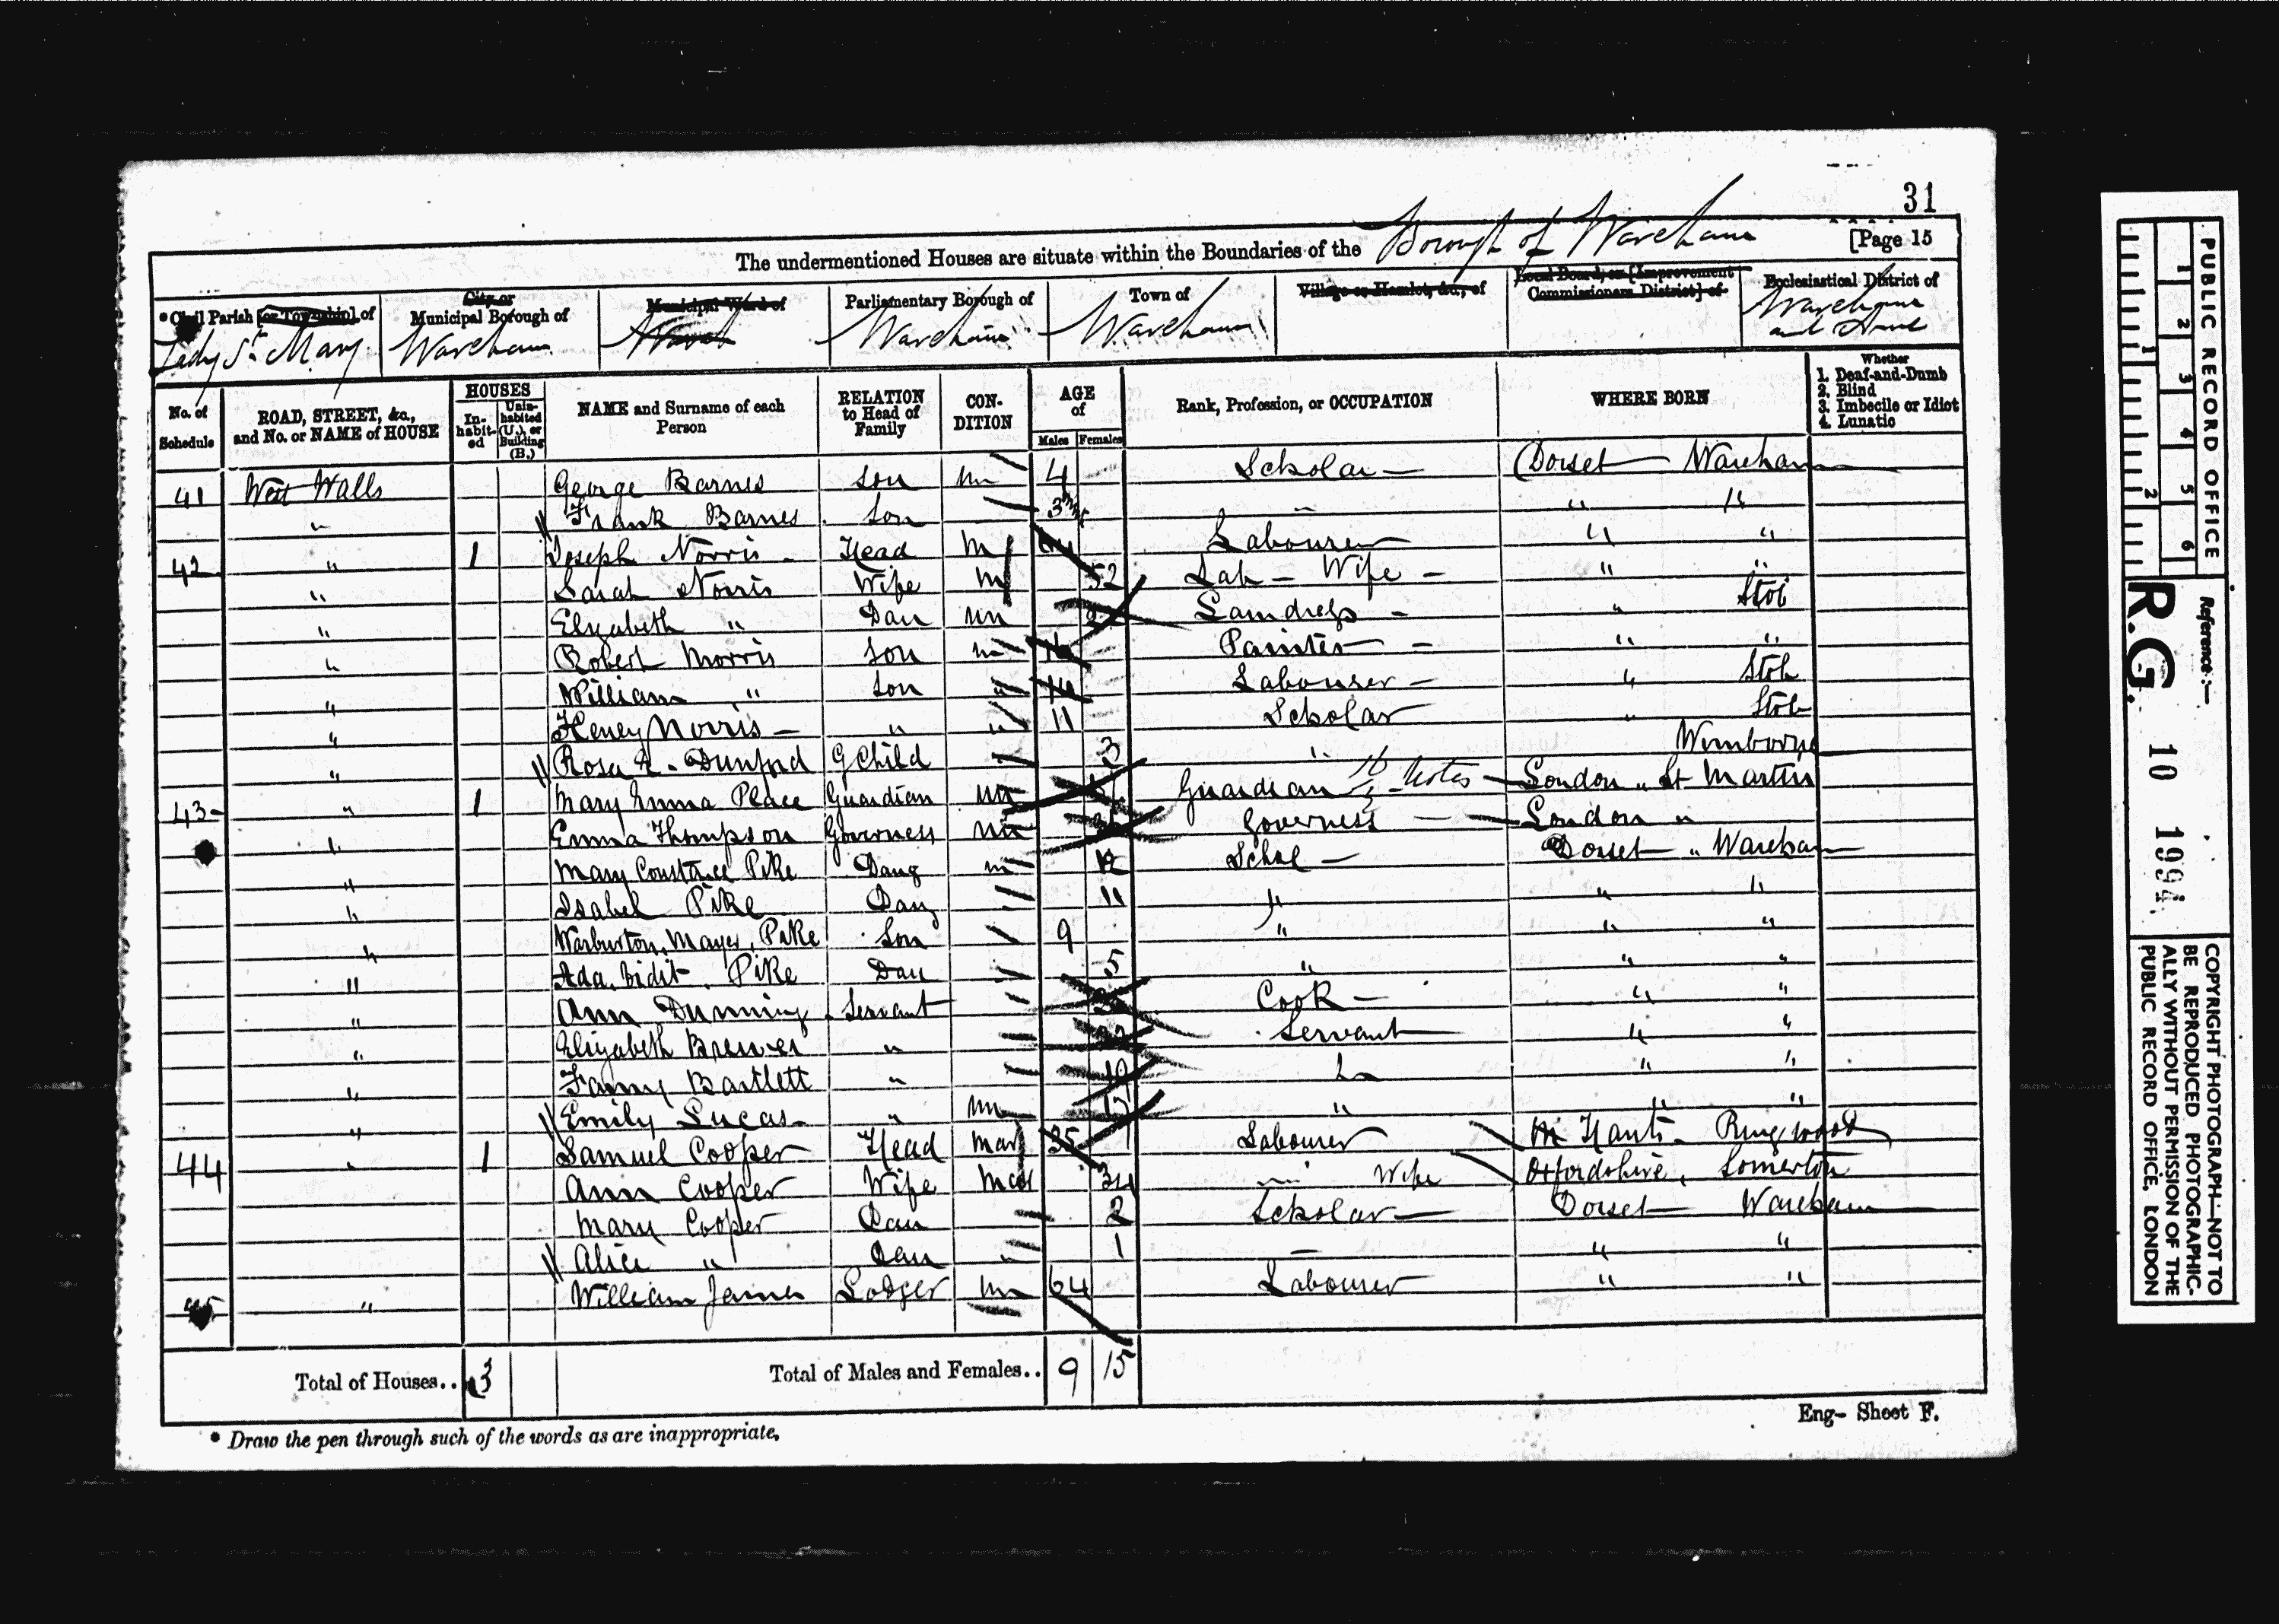 31
The undermentioned Houses are situate within the Boundaries of the Borough of Wareham [Page 15
*Civil Parish [or Township] of Lady St. Mary
City or Municipal Borough of Wareham
Municipal Ward of
Parliamentary Borough of Wareham
Town of Wareham
Village or Hamlet, &c., of
Local Board, or [Improvement Commissioners District] of
Ecclesiastical District of Wareham and Arne
No. of Schedule
ROAD, STREET, &c., and No. or NAME of HOUSE
HOUSES
In-habit-ed
Unin-habited (U.), or Building (B.)
NAME and Surname of each Person
RELATION to Head of Family
CON-DITION
AGE of
Males Females
Rank, Profession, or OCCUPATION
WHERE BORN
Whether
1. Deaf-and-Dumb
2. Blind
3. Imbecile or Idiot
4. Lunatic
41 West Walls George Barnes Son un 4 Scholar Dorset Wareham
" Frank Barnes Son " "
42 " 1 Joseph Norris Head M Labourer " "
" Sarah Norris Wife M 52 Lab - Wife " "
" Elizabeth " Dau un " Stob
" Robert Morris Son Painter " "
" William " Son " Labourer " Stob
" Henry Norris " " 11 Scholar " Stob
" Rosa Dunford G Child 3 " Wimborne
43 " 1 Mary Emma Place Guardian un Guardian London " St Martin
" Emma Thompson Governess un Governess London "
" Mary Constance Pike Daug 12 Schol Dorset " Wareham
" Isabel Pike Daug 11 " " "
" Warburton, Mayer, Pike Son 9 " " "
" Ada, Pike Dau 5 " " "
" Ann Dunning Servant Cook " "
" Elizabeth Brewer " Servant " "
" Fanny Bartlett " " "
" Emily Lucas " un " " "
44 " 1 Samuel Cooper Head Mar 35 Labourer Hants Ringwood
Ann Cooper Wife Mar 34 Wife Oxfordshire, Somerton
Mary Cooper Dau 2 Scholar Dorset Wareham
Alice " Dau " 1 " "
45 " William James Lodger un 64 Labourer " "
Total of Houses.. 3
Total of Males and Females.. 9 15
* Draw the pen through such of the words as are inappropriate.
Eng- Sheet F.
PUBLIC RECORD OFFICE
1 2 3 4 5 6
1 2
Reference:—
R.G. 10 1994
COPYRIGHT PHOTOGRAPH—NOT TO BE REPRODUCED PHOTOGRAPHIC-ALLY WITHOUT PERMISSION OF THE PUBLIC RECORD OFFICE, LONDON